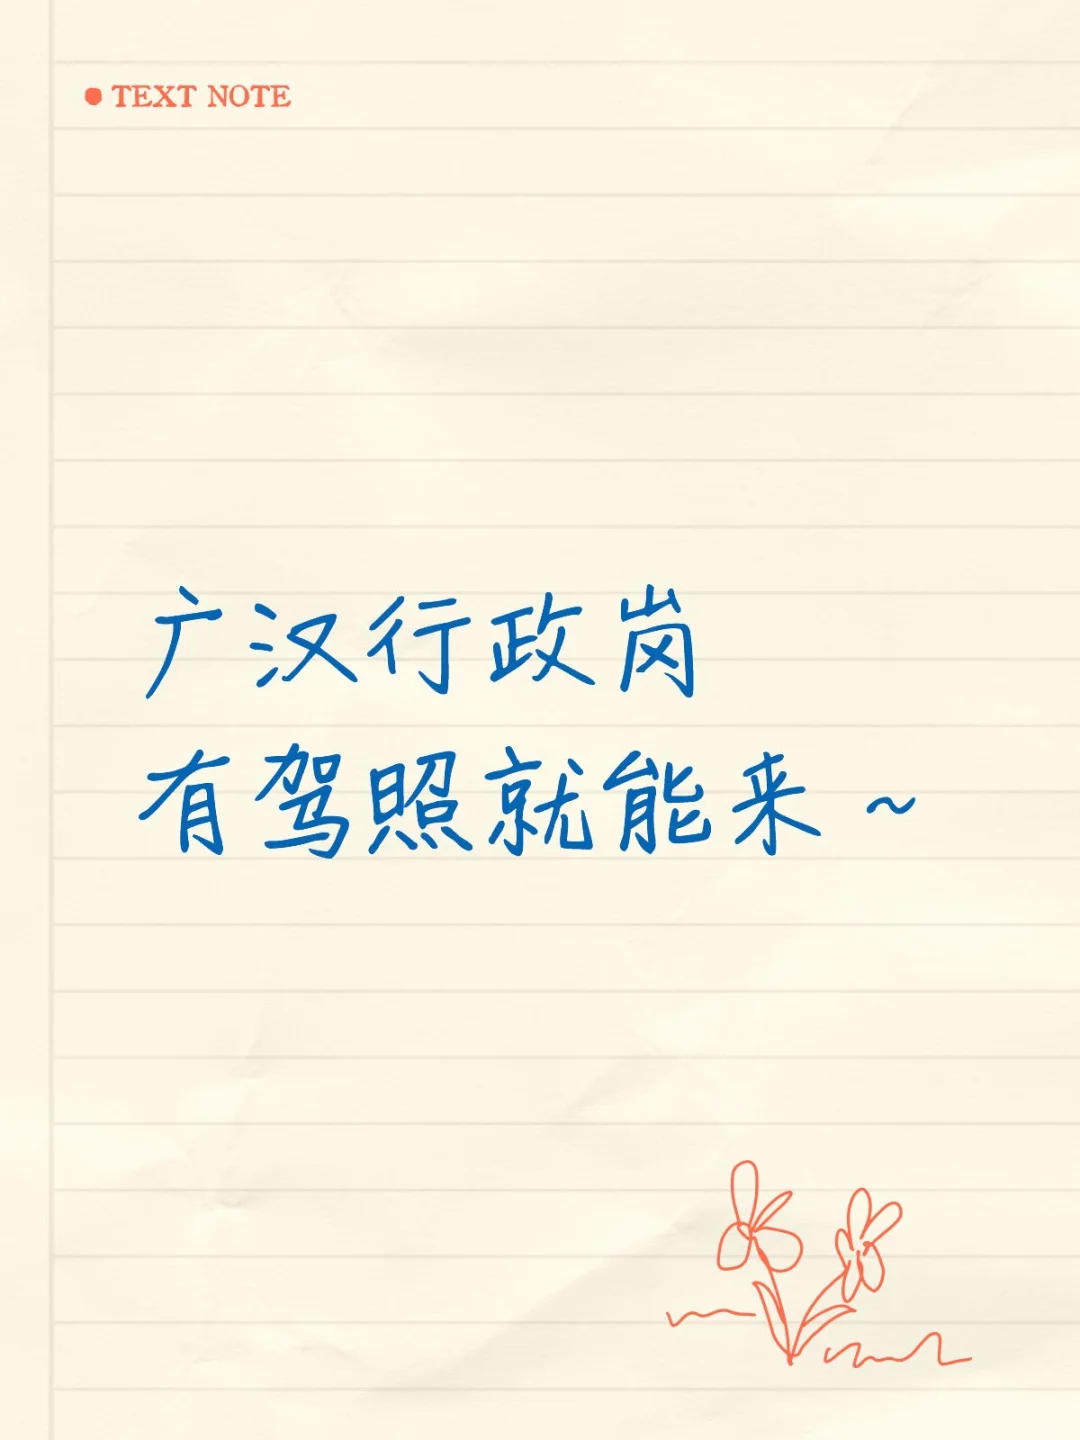 TEXT NOTE
广汉行政岗
有驾照就能来～